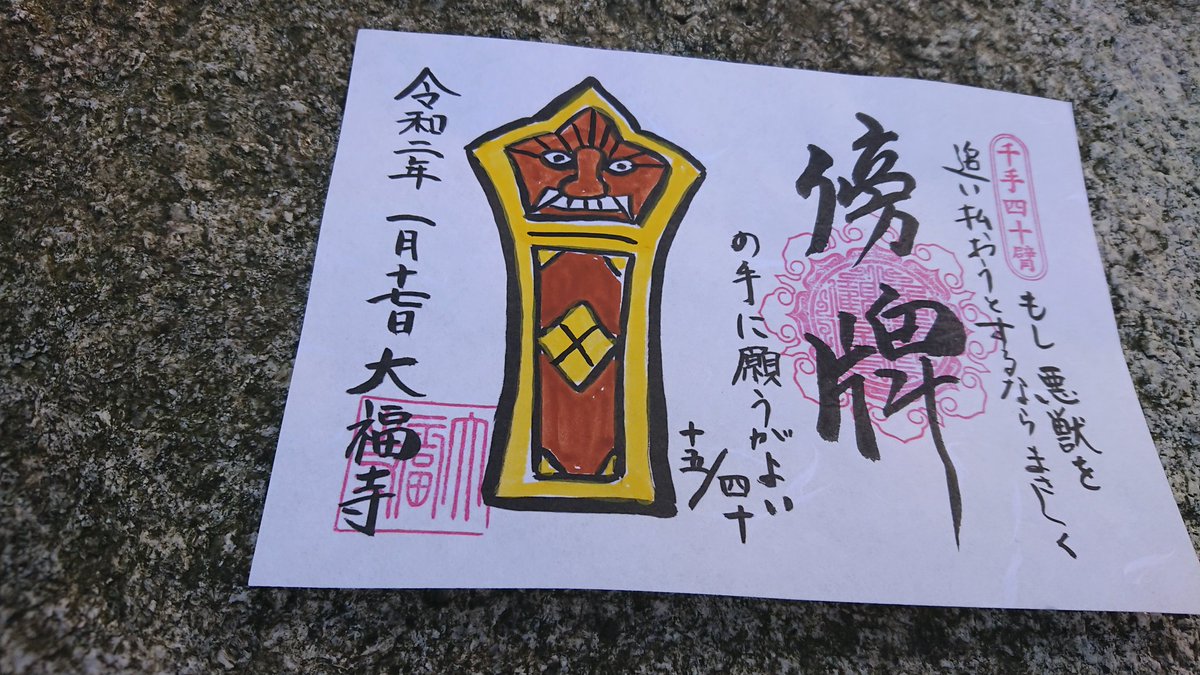 千手四十臂
もし悪獣を
追い払おうとするならまさしく
傍牌
の手に願うがよい
十五/四十
令和二年 一月十七日 大福寺